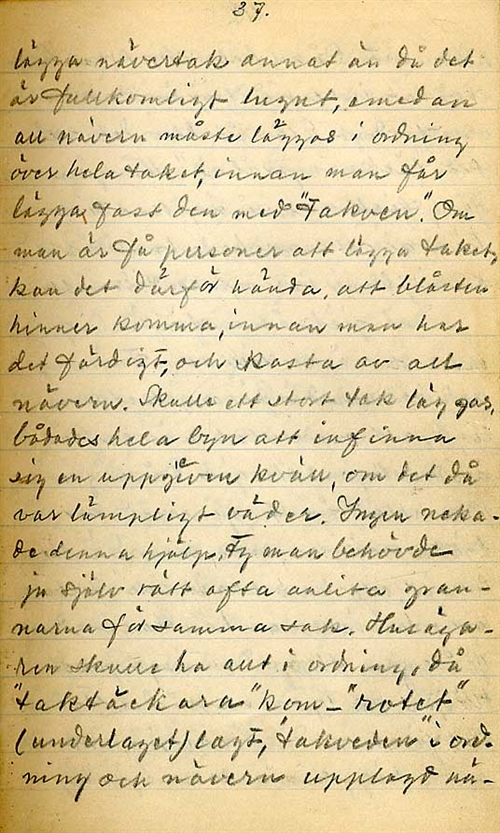 37.
lägga nävertak annat än då det
är fullkomligt lugnt, emedan
all nävern måste läggas i ordning
över hela taket, innan man får
lägga fast den med "Takven". Om
man är få personer att lägga taket,
kan det därför hända, att blåsten
hinner komma, innan man har
det färdigt, och kasta av all
nävern. Skulle ett stort tak läggas,
bådades hela byn att infinna
sig en uppgiven kväll, om det då
var lämpligt väder. Ingen neka-
de denna hjälp, ty man behövde
ju själv rätt ofta anlita gran-
narna för samma sak. Husäga-
ren skulle ha allt i ordning, då
"taktäckara" kom – "rotet"
(underlaget) lagt, "takveden" i ord-
ning och nävern upplagd nä-